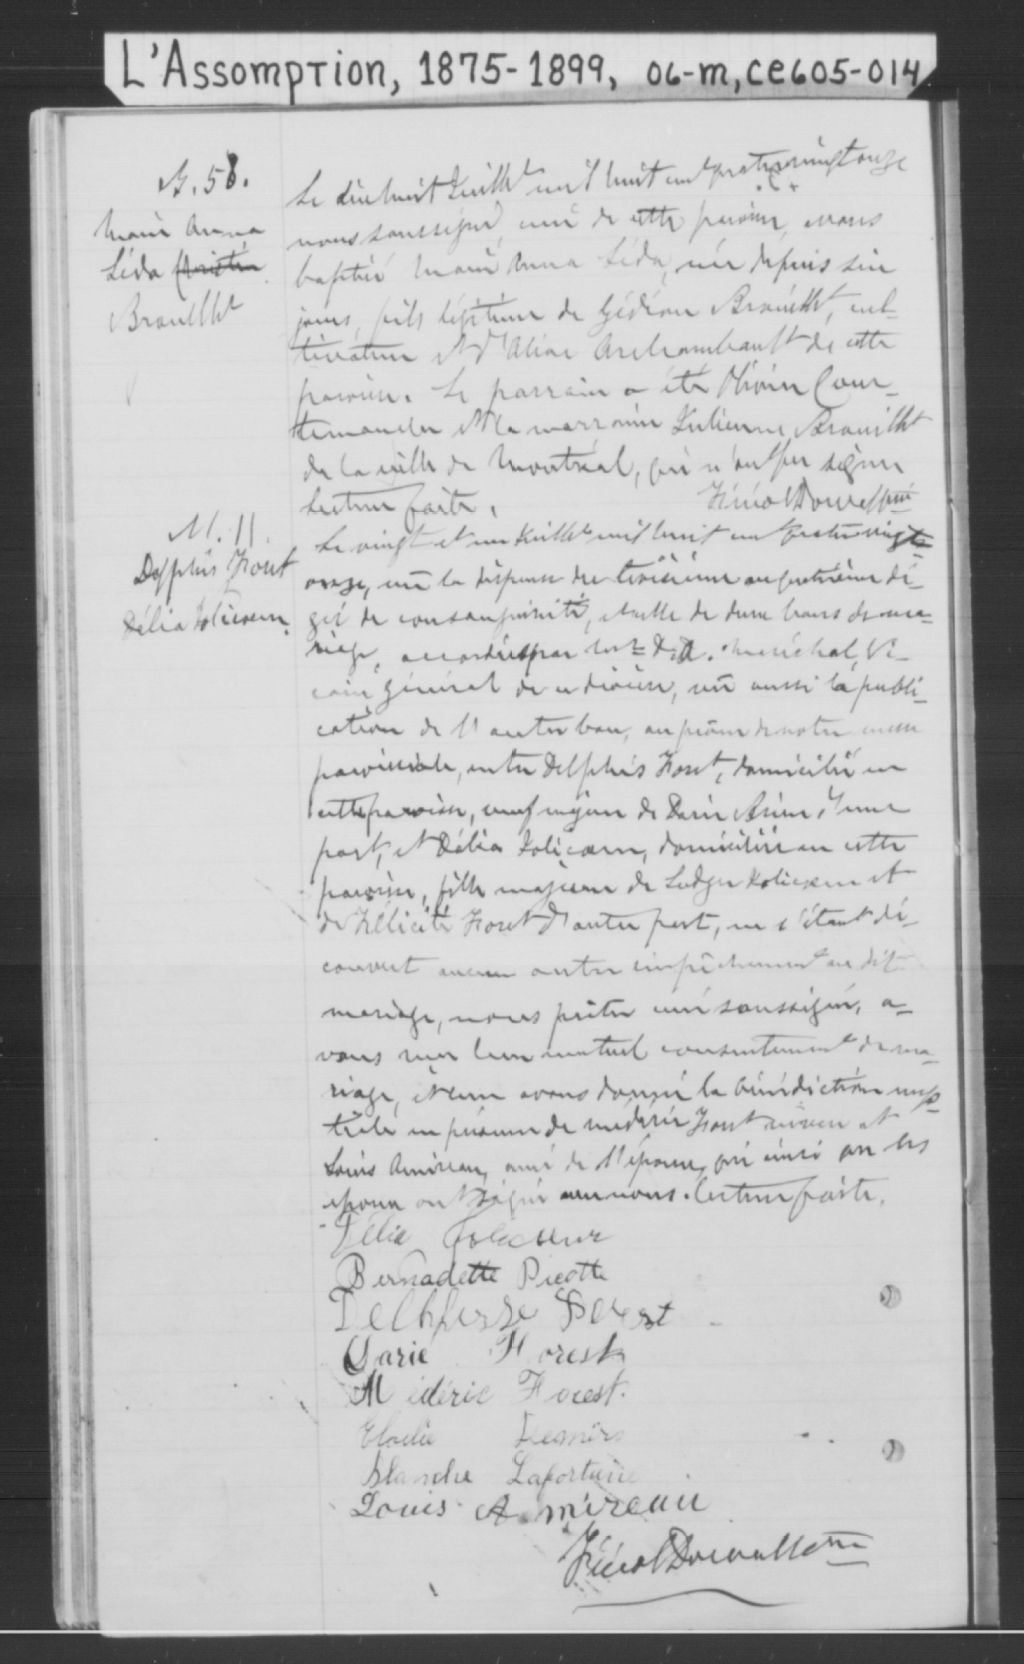 L'Assomption, 1875-1899, 06-M, CE605-014
B. 58.
Marie Anna
Léda
Brouillet
Le dix huit Juillet mil huit cent quatre vingt onze
nous soussigné, curé de cette paroisse, avons
baptisé Marie Anna Léda, née depuis six
jours, fils légitime de Gédéon Brouillet, cul-
tivateur et d'Alice Archambault de cette
paroisse. Le parrain a été Olivier Cour-
temanche et la marraine Julienne Brouillet
de la ville de Montréal, qui n'ont pu signer
Lecture faite.
M. 11.
Delphis Foret
Délia Jolicoeur
Le vingt et un Juillet mil huit cent quatre vingt
onze, vu la dispense du troisième au quatrième de-
gré de consanguinité, et celle de deux bans de ma-
riage, accordées par Mr. Maréchal, Vi-
caire Général de ce diocèse, vu aussi la publi-
cation de l'autre ban, au prône de notre messe
paroissiale, entre Delphis Foret, domicilié en
cette paroisse, veuf majeur de d'une
part, et Délia Jolicoeur, domiciliée en cette
paroisse, fille majeure de Ludger Jolicoeur et
de Félicité Foret d'autre part, ne s'étant dé-
couvert aucun autre empêchement au dit
mariage, nous prêtre curé soussigné, a-
vons reçu leur mutuel consentement de ma-
riage, et leur avons donné la bénédiction nup-
tiale en présence de Médéric Foret et
Louis Amireau, ami de l'époux, qui ainsi que les
époux ont signé avec nous. Lecture faite.
Délia Jolicoeur
Bernadette Picotte
Forest
Marie Forest
Médéric Forest.
Elodie
Blanche Lafortune
Louis A. mireau